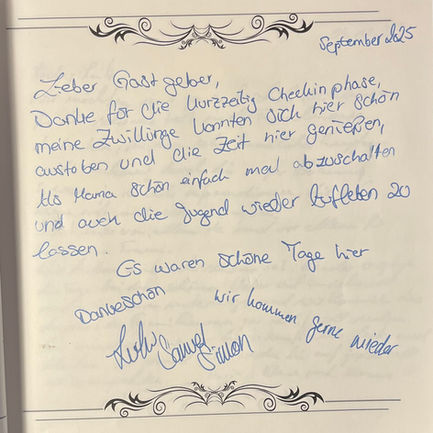 September 2025
Lieber Gastgeber,
Danke für die kurzzeitig Checkinphase,
meine Zwillinge konnten sich hier schön
austoben und die Zeit hier genießen,
Als Mama schön einfach mal abzuschalten
und auch die Jugend wieder Aufleben zu
lassen.
Es waren schöne Tage hier
Dankeschön wir kommen gerne wieder
Samuel
Simon